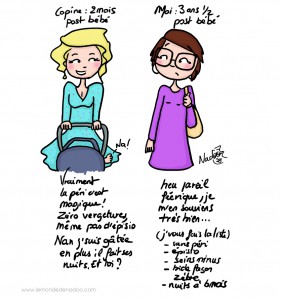 Copine : 2 mois
post bébé
Moi : 3 ans 1/2
post bébé
Na!
Vraiment
la péri c'est
magique !
Zéro vergetures,
même pas d'épisio
Nan j'suis gâtée
en plus il fait ses
nuits. Et toi ?
heu pareil
féérique, je
m'en souviens
très bien...
(j'vous fais la liste)
- sans péri
- épisio
- seins minus
- bide façon
zèbre
- nuits à 6mois